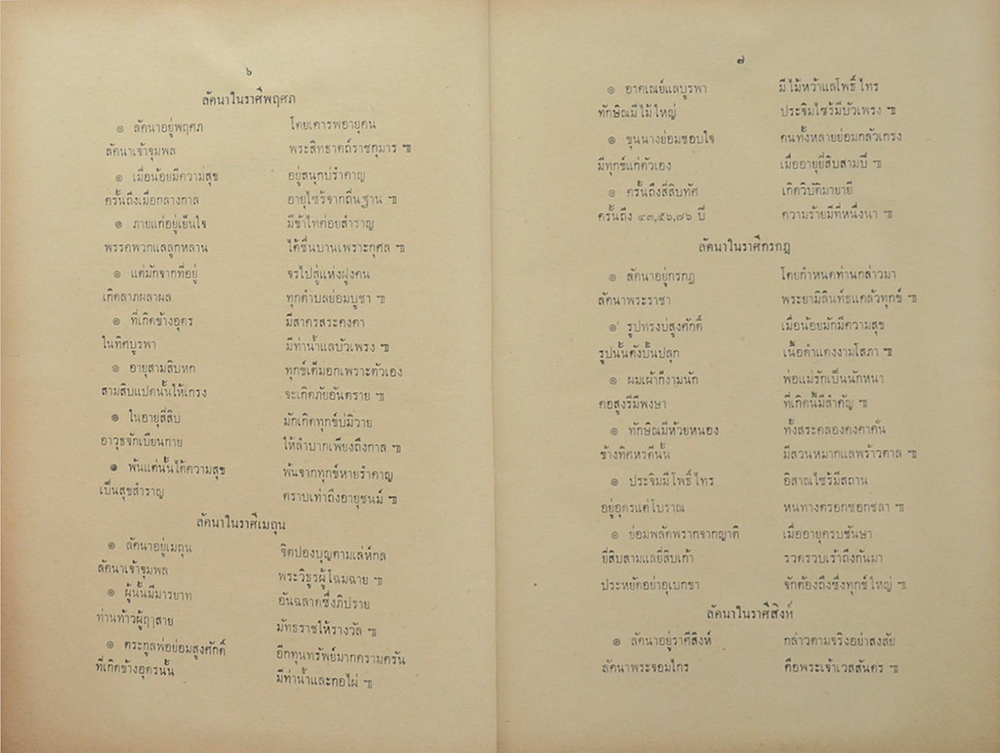 ๖
ลัคนาในราศีพฤศภ
๏ ลัคนาอยู่พฤศภ โดยเคารพอายุคน
ลัคนาเจ้าจุมพล พระสิทธาตถ์ราชกุมาร ฯ
๏ เมื่อน้อยมีความสุข อยู่สนุกบ่รำคาญ
ครั้นถึงเมื่อกลางกาล อายุไซร้จากถิ่นฐาน ฯ
๏ ภายแก่อยู่เย็นใจ มีข้าไทค่อยสำราญ
พรรคพวกแลลูกหลาน ได้ชื่นบานเพราะกุศล ฯ
๏ แต่มักจากที่อยู่ จรไปสู่แห่งฝูงคน
เกิดลาภผลาผล ทุกตำบลย่อมบูชา ฯ
๏ ที่เกิดข้างอุดร มีสาครสระคงคา
ในทิศบูรพา มีท่าน้ำแลบัวเพรง ฯ
๏ อายุสามสิบหก ทุกข์เต็มอกเพราะตัวเอง
สามสิบแปดนั้นให้เกรง จะเกิดภัยอันตราย ฯ
๏ ในอายุสี่สิบ มักเกิดทุกข์บ่มิวาย
อาวุธจักเบียนกาย ให้ลำบากเพียงถึงกาล ฯ
๏ พ้นแต่นั้นได้ความสุข พ้นจากทุกข์หายรำคาญ
เป็นสุขสำราญ ตราบเท่าถึงอายุชนม์ ฯ
ลัคนาในราศีเมถุน
๏ ลัคนาอยู่เมถุน จิตปองบุญตามเล่ห์กล
ลัคนาเจ้าจุมพล พระวิธูรผู้โฉมฉาย ฯ
๏ ผู้นั้นมีมารยาท อันฉลาดซึ่งภิปราย
ท่านท้าวผู้ฤๅสาย มัทธราชให้รางวัล ฯ
๏ ตระกูลพ่อย่อมสูงศักดิ์ อีกทุนทรัพย์มากครามครัน
ที่เกิดข้างอุดรนั้น มีท่าน้ำและกอไผ่ ฯ
๗
๏ อาคเณย์แลบูรพา มีไม้หว้าแลโพธิ์ไทร
ทักษิณมีไม้ใหญ่ ประจิมไซร้มีบัวเพรง ฯ
๏ ขุนนางย่อมชอบใจ คนทั้งหลายย่อมกลัวเกรง
มีทุกข์แก่ตัวเอง เมื่ออายุยี่สิบสามปี ฯ
๏ ครั้นถึงสี่สิบทัศ เกิดวิบัติมายายี
ครั้นถึง ๔๓,๕๖,๗๖ ปี ความร้ายมีที่หนึ่งนา ฯ
ลัคนาในราศีกรกฎ
๏ ลัคนาอยู่กรกฎ โดยกำหนดท่านกล่าวมา
ลัคนาพระราชา พระยามิลินท์ธแคล้วทุกข์ ฯ
๏ รูปทรงบ่สูงศักดิ์ เมื่อน้อยมักมีความสุข
รูปนั้นดังปั้นปลุก เนื้อดำแดงงามโสภา ฯ
๏ ผมเผ้าก็งามนัก พ่อแม่รักเป็นนักหนา
คอสูงรีมีพงษา ที่เกิดนี้มีสำคัญ ฯ
๏ ทักษิณมีห้วยหนอง ทั้งสระคลองคงคาคั่น
ข้างทิศหรดีนั้น มีสวนหมากแลพร้าวตาล ฯ
๏ ประจิมมีโพธิ์ไทร อิสาณไซร้มีสถาน
อยู่อุดรแต่โบราณ หนทางตรอกซอกชลา ฯ
๏ ย่อมพลัดพรากจากญาติ เมื่ออายุครบชันษา
ยี่สิบสามแลยี่สิบเก้า รวดรวบเร้าถึงกันมา
ประหยัดอย่าอุเบกขา จักต้องถึงซึ่งทุกข์ใหญ่ ฯ
ลัคนาในราศีสิงห์
๏ ลัคนาอยู่ราศีสิงห์ กล่าวตามจริงอย่าสงสัย
ลัคนาพระจอมไกร คือพระเจ้าเวสสันดร ฯ